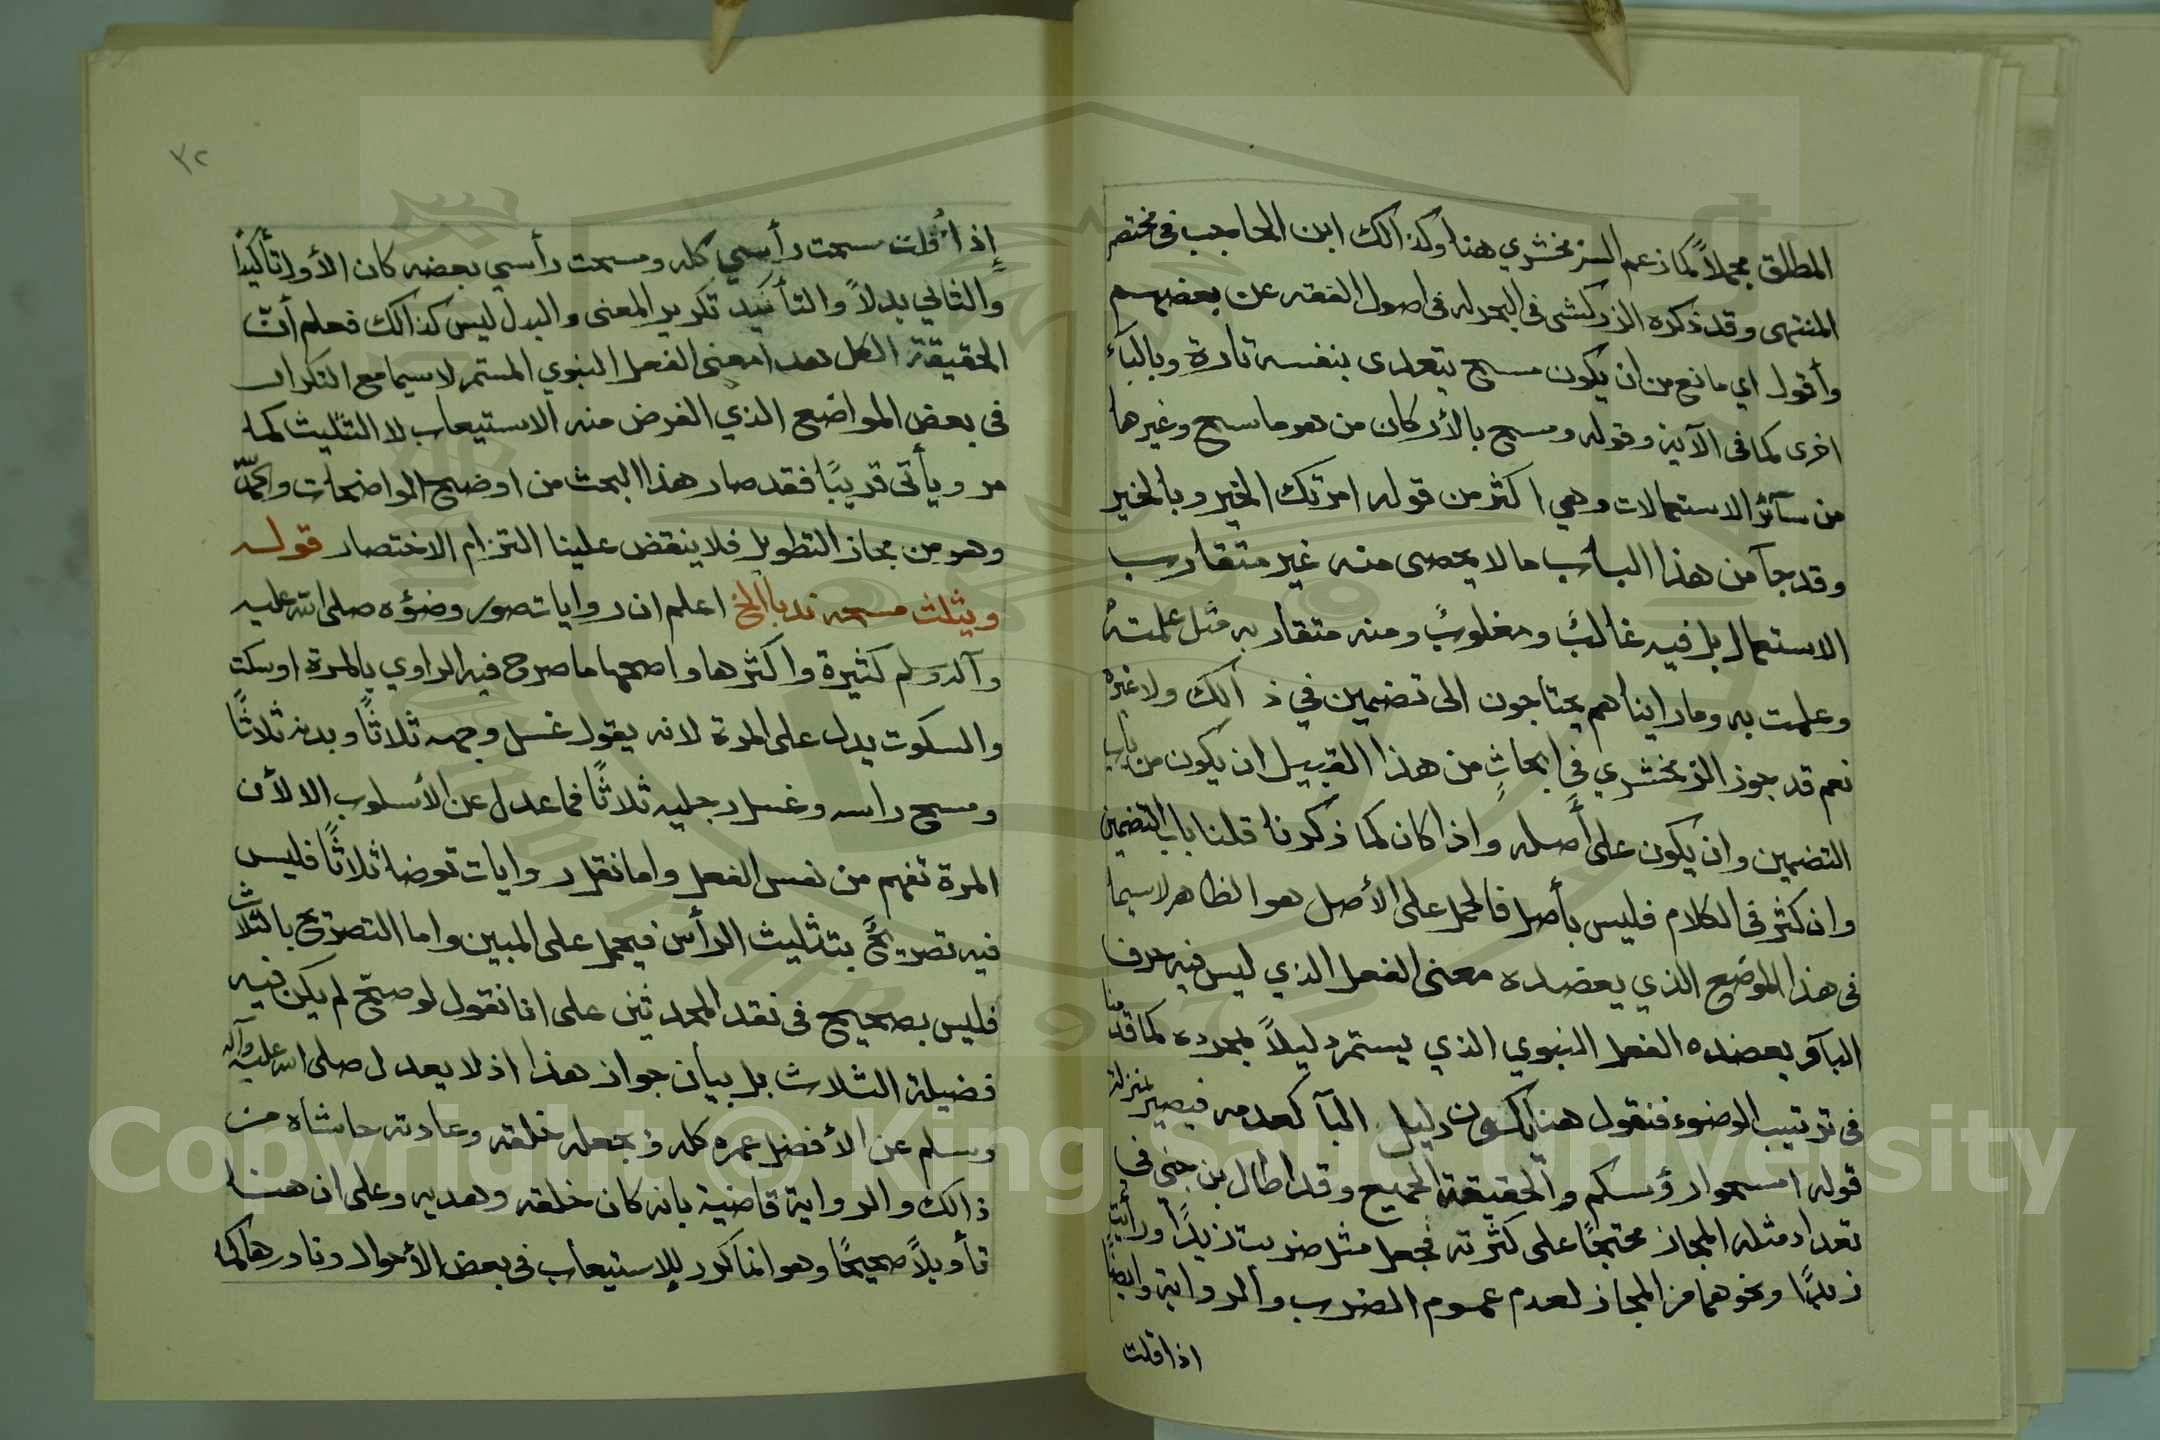 المطلق مجملاً كما زعم الزمخشري هنا وكذالك ابن الحاجب في مختصر
المنتهى وقد ذكره الزركشي في البحر له في اصول الفقه عن بعضهم
وأقول اي مانع من ان يكون مسح يتعدى بنفسه تارة وبالبآء
اخرى كما في الآية وقوله ومسح بالأركان من هو ماسح وغيرها
من سآئر الاستعمالات وهي اكثر من قوله امرتك الخير وبالخير
وقد جآ من هذا الباب ما لا يحصى منه غير متقارب
الاستعمال بل فيه غالبٌ ومغلوبٌ ومنه متقاربه مثل علمته
وعلمت به وما رايناهم يحتاجون الى تضمين في ذالك ولا غيره
نعم قد جوز الزمخشري في ابحاثٍ من هذا القبيل ان يكون من باب
التضمين وان يكون على أصله واذا كان كما ذكرنا قلنا باب التضمين
وان كثر في الكلام فليس بأصل فالحمل على الأصل هو الظاهر لاسيما
في هذا الموضع الذي يعضده معنى الفعل الذي ليس فيه حرف
البآء ويعضده الفعل النبوي الذي يستمر دليلاً بمجرده كما قدمنا
في ترتيب الوضوء فنقول هنا يكون دليل البآ كعدمه فيصير بمنزلة
قوله امسحوا رؤسكم والحقيقة الجميع وقد اطال بن جني في
تعداد مثله المجاز محتجًا على كثرته فجعل مثل ضربت زيدًا ورأيت
زيدًا ونحوهما من المجاز لعدم عموم الضرب والرواية وايضًا
اذا قلت
٣٢
إذا قلت مسحت رأسي كله ومسحت رأسي بعضه كان الأول تأكيدًا
والثاني بدلاً والتأكيد تكرير المعنى والبدل ليس كذالك فعلم أنّ
الحقيقة الكل هذا معنى الفعل النبوي المستمر لاسيما مع التكرار
في بعض المواضع الذي الغرض منه الاستيعاب لا التثليث كما
مر ويأتي قريبًا فقد صار هذا البحث من اوضح الواضحات
وهو من مجاز التطويل فلا ينقض علينا التزام الاختصار قوله
ويثلث مسحه ندبا الخ اعلم ان روايات صور وضؤه صلى الله عليه
وآله وسلم كثيرة واكثرها واصحها ما صرح فيه الراوي بالمرة او سكت
والسكوت يدل على المرة لانه يقول غسل وجهه ثلاثًا ويديه ثلاثًا
ومسح راسه وغسل رجليه ثلاثًا فما عدل عن الأسلوب الا لأن
المرة تفهم من نفس الفعل واما نقل روايات توضا ثلاثًا فليس
فيه تصريحٌ بتثليث الرأس فيحمل على المبين واما التصريح بالثلاث
فليس بصحيح في نقد المحدثين على انا نقول لو صحّ لم يكن فيه
فضيلة الثلاث بل بيان جواز هذا اذ لا يعدل صلى الله عليه وآله
وسلم عن الأفضل عمره كله ويجعله خلقه وعادته حاشاه من
ذالك والرواية قاضية بانه كان خلقه وهديه وعلى ان هنا
تأويلاً صحيحًا وهو انما كرر للإستيعاب في بعض الأحوال ونادرها كما
Copyright © King Saud University